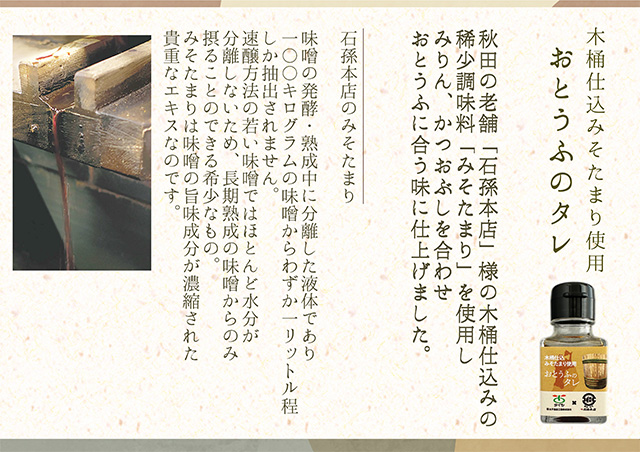 木桶仕込みそたまり使用
おとうふのタレ
秋田の老舗「石孫本店」様の木桶仕込みの
稀少調味料「みそたまり」を使用し
みりん、かつおぶしを合わせ
おとうふに合う味に仕上げました。
石孫本店のみそたまり
味噌の発酵・熟成中に分離した液体であり
一〇〇キログラムの味噌からわずか一リットル程
しか抽出されません。
速醸方法の若い味噌ではほとんど水分が
分離しないため、長期熟成の味噌からのみ
摂ることのできる希少なもの。
みそたまりは味噌の旨味成分が濃縮された
貴重なエキスなのです。
木桶仕込
みそたまり使用
おとうふの
タレ